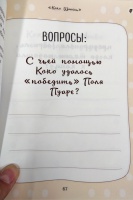 ВОПРОСЫ:
С чьей помощью
Коко удалось
«победить» Поля
Пуаре?
67